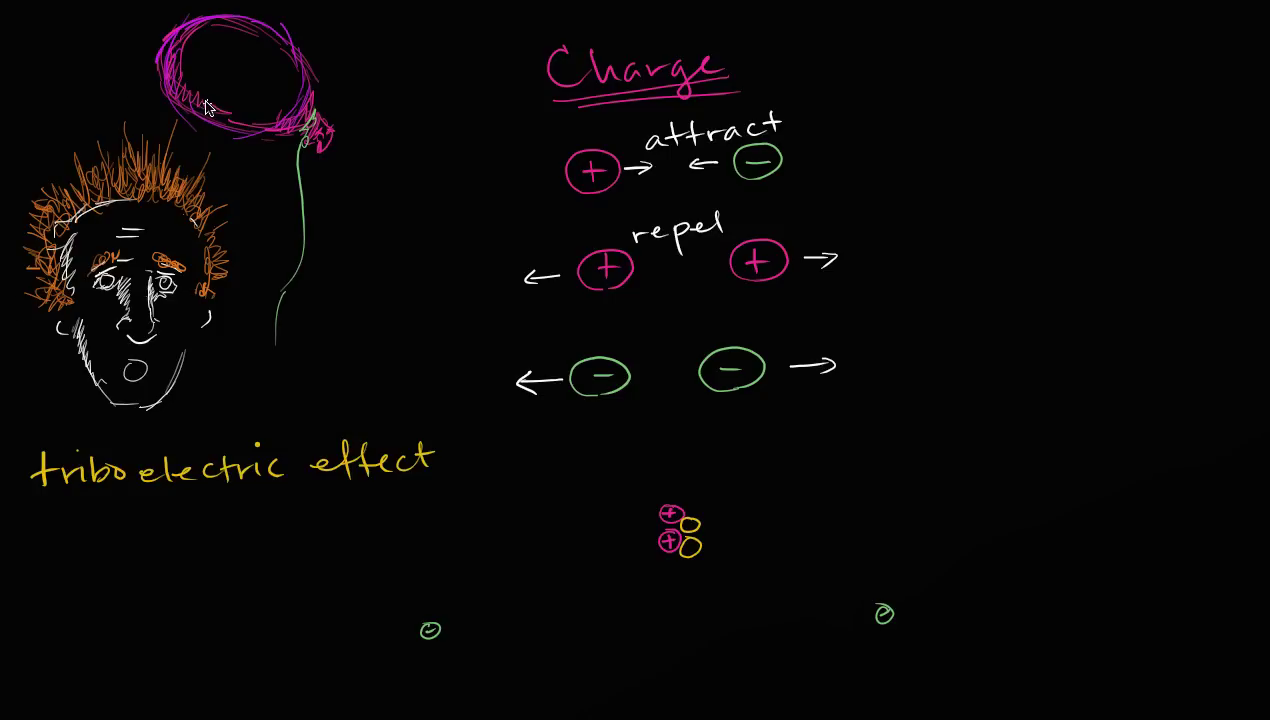 Charge
attract
+ -
repel
+ +
- -
triboelectric effect
+
+
- -